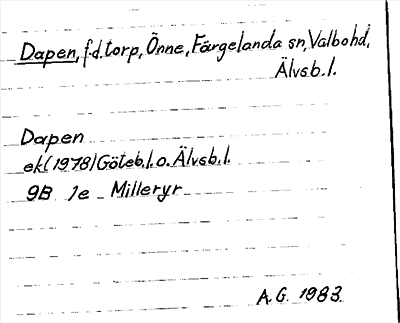 Dapen, f.d. torp, Önne, Färgelanda sn, Valbohd,
Älvsb.l.
Dapen
ek (1978) Göteb.l. o. Älvsb.l.
9B 1e Milleryr
A.G. 1983.